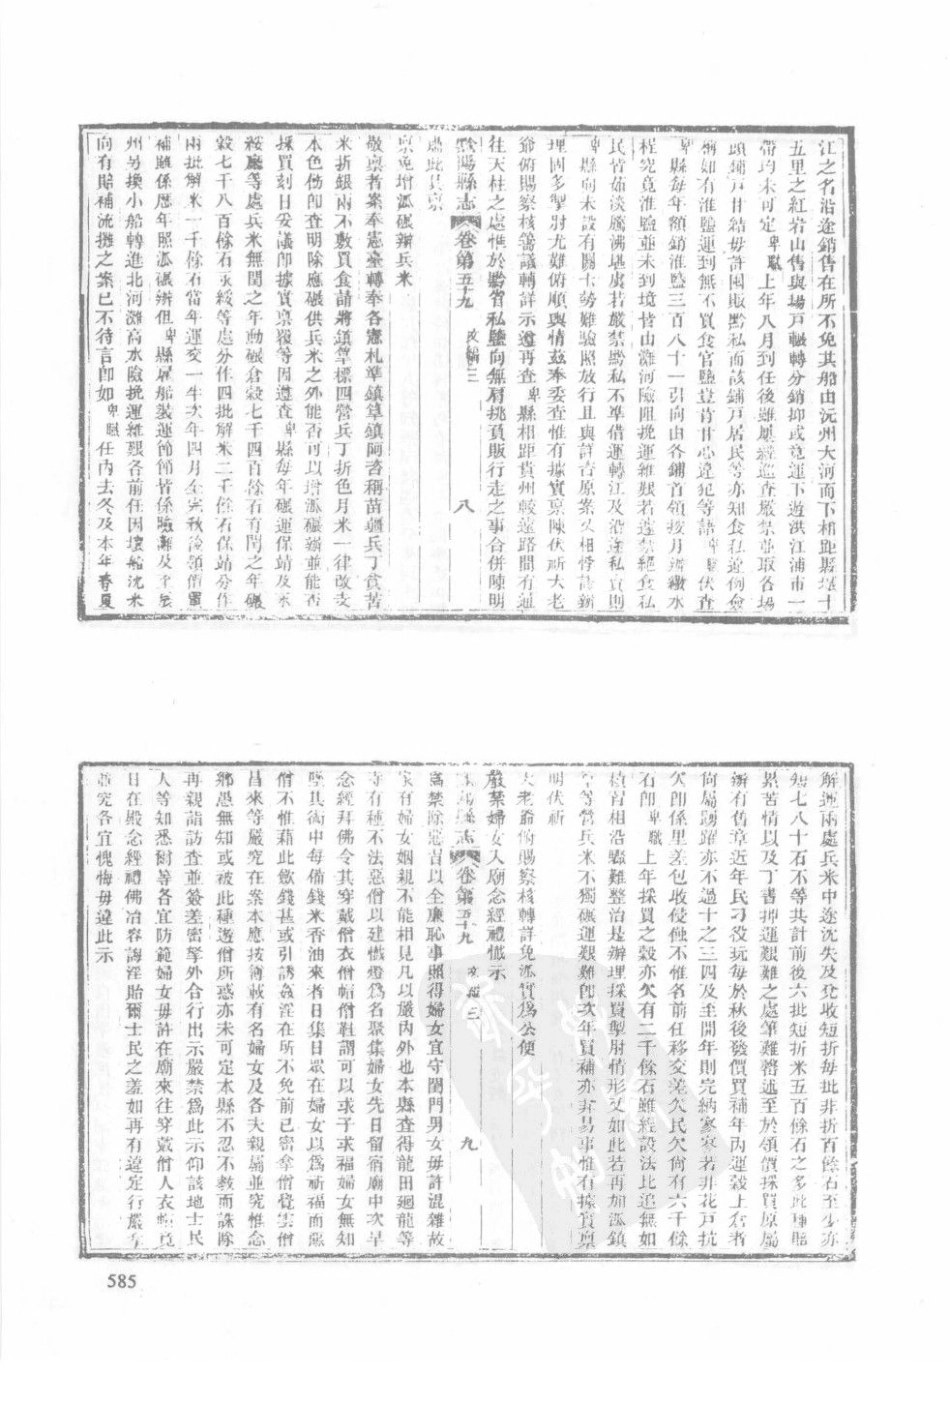 江之名沿途銷售在所不免其船由沅州大河而下相距縣城十
五里之紅岩山售與場戶輾轉分銷抑或竟運下遊洪江浦市一
帶均未可定卑職上年八月到任後雖屢經巡查嚴禁並取各場
頭鋪戶甘結毋許囤販黔私而該鋪戶居民等亦知食私違例僉
稱如有淮鹽運到無不買食官鹽豈肯甘心違犯等語卑職伏查
卑縣每年額銷淮鹽三百八十一引向由各鋪首領按月辨繳水
程究竟淮鹽並未到境皆由灘河險阻挽運維艱若遽禁絕食私
民皆茹淡騰沸堪虞若嚴禁黔私不準借運轉江及沿途私賣則
卑縣向未設有關卡勢難驗照放行且與詳咨原案又相悖謬辦
理固多掣肘尤難俯順輿情茲奉委查惟有據實稟陳伏祈大老
爺俯賜察核籌議轉詳示遵再查卑縣相距貴州較遠路間有通
往天柱之處惟於黔省私鹽向無肩挑負販行走之事合併陳明
肅此具稟
黔陽縣志 卷第五十九 攻編三 八
稟免增派碾辦兵米
敬稟者案奉憲臺轉奉各憲札準鎮筸鎮閻咨稱苗疆兵丁貧苦
米折銀兩不敷買食請將鎮筸標四營兵丁折色月米一律改支
本色飭即查明除應碾供兵米之外能否可以增派碾辦並能否
採買刻日妥議即據實稟覆等因遵查卑縣每年碾運保靖及永
綏廳等處兵米無閏之年動碾倉穀七千四百餘石有閏之年碾
穀七千八百餘石永綏等處分作四批解米二千餘石保靖分作
兩批解米一千餘石當年運交一半次年四月全完秋後領價買
補雖係歷年照派碾辨但卑縣雇船裝運節節皆係險灘及至辰
州另換小船轉進北河灘高水險挽運維艱各前任因壞船沈米
向有賠補流攤之案已不待言即如卑職任內去冬及本年春夏
解運兩處兵米中途沈失及兌收短折每批非折百餘石至少亦
短七八十石不等共計前後六批短折米五百餘石之多此種賠
累苦情以及丁書押運艱難之處筆難罄述至於領價採買原屬
辦有舊章近年民刁役玩每於秋後發價買補年內運穀上倉者
尚屬踴躍亦不過十之三四及至開年則完納寥寥若非花戶抗
欠即係里差包收侵蝕不惟各前任移交差欠民欠尚有六千餘
石即卑職上年採買之穀亦欠有二千餘石雖經設法比追無如
積習相沿驟難整治是辦理採買掣肘情形又如此若再加派鎮
筸等營兵米不獨碾運艱難即次年買補亦非易事惟有據實稟
明伏祈
大老爺俯賜察核轉詳免派實為公便
嚴禁婦女入廟念經禮懺示
黔陽縣志 卷第五十九 攻編三 九
為禁除惡習以全廉恥事照得婦女宜守閨門男女毋許混雜故
家有婦女姻親不能相見凡以嚴內外也本縣查得龍田迴龍等
寺有種不法惡僧以建懺燈為名聚集婦女先日留宿廟中次早
念經拜佛令其穿戴僧衣僧帽僧鞋謂可以求子求福婦女無知
墮其術中每備錢米香油來者日集日眾在婦女以為祈福而惡
僧不惟藉此斂錢甚或引誘姦淫在所不免前已密拿僧覺雲僧
昌來等嚴究在案本應按簿載有名婦女及各夫親屬並究惟念
鄉愚無知或被此種遊僧所惑亦未可定本縣不忍不教而誅除
再親詣訪查並簽差密拏外合行出示嚴禁為此示仰該地士民
人等知悉爾等各宜防範婦女毋許在廟來往穿戴僧人衣帽竟
日在殿念經禮佛冶容誨淫貽爾士民之羞如再有違定行嚴拿
並究各宜愧悔毋違此示
585